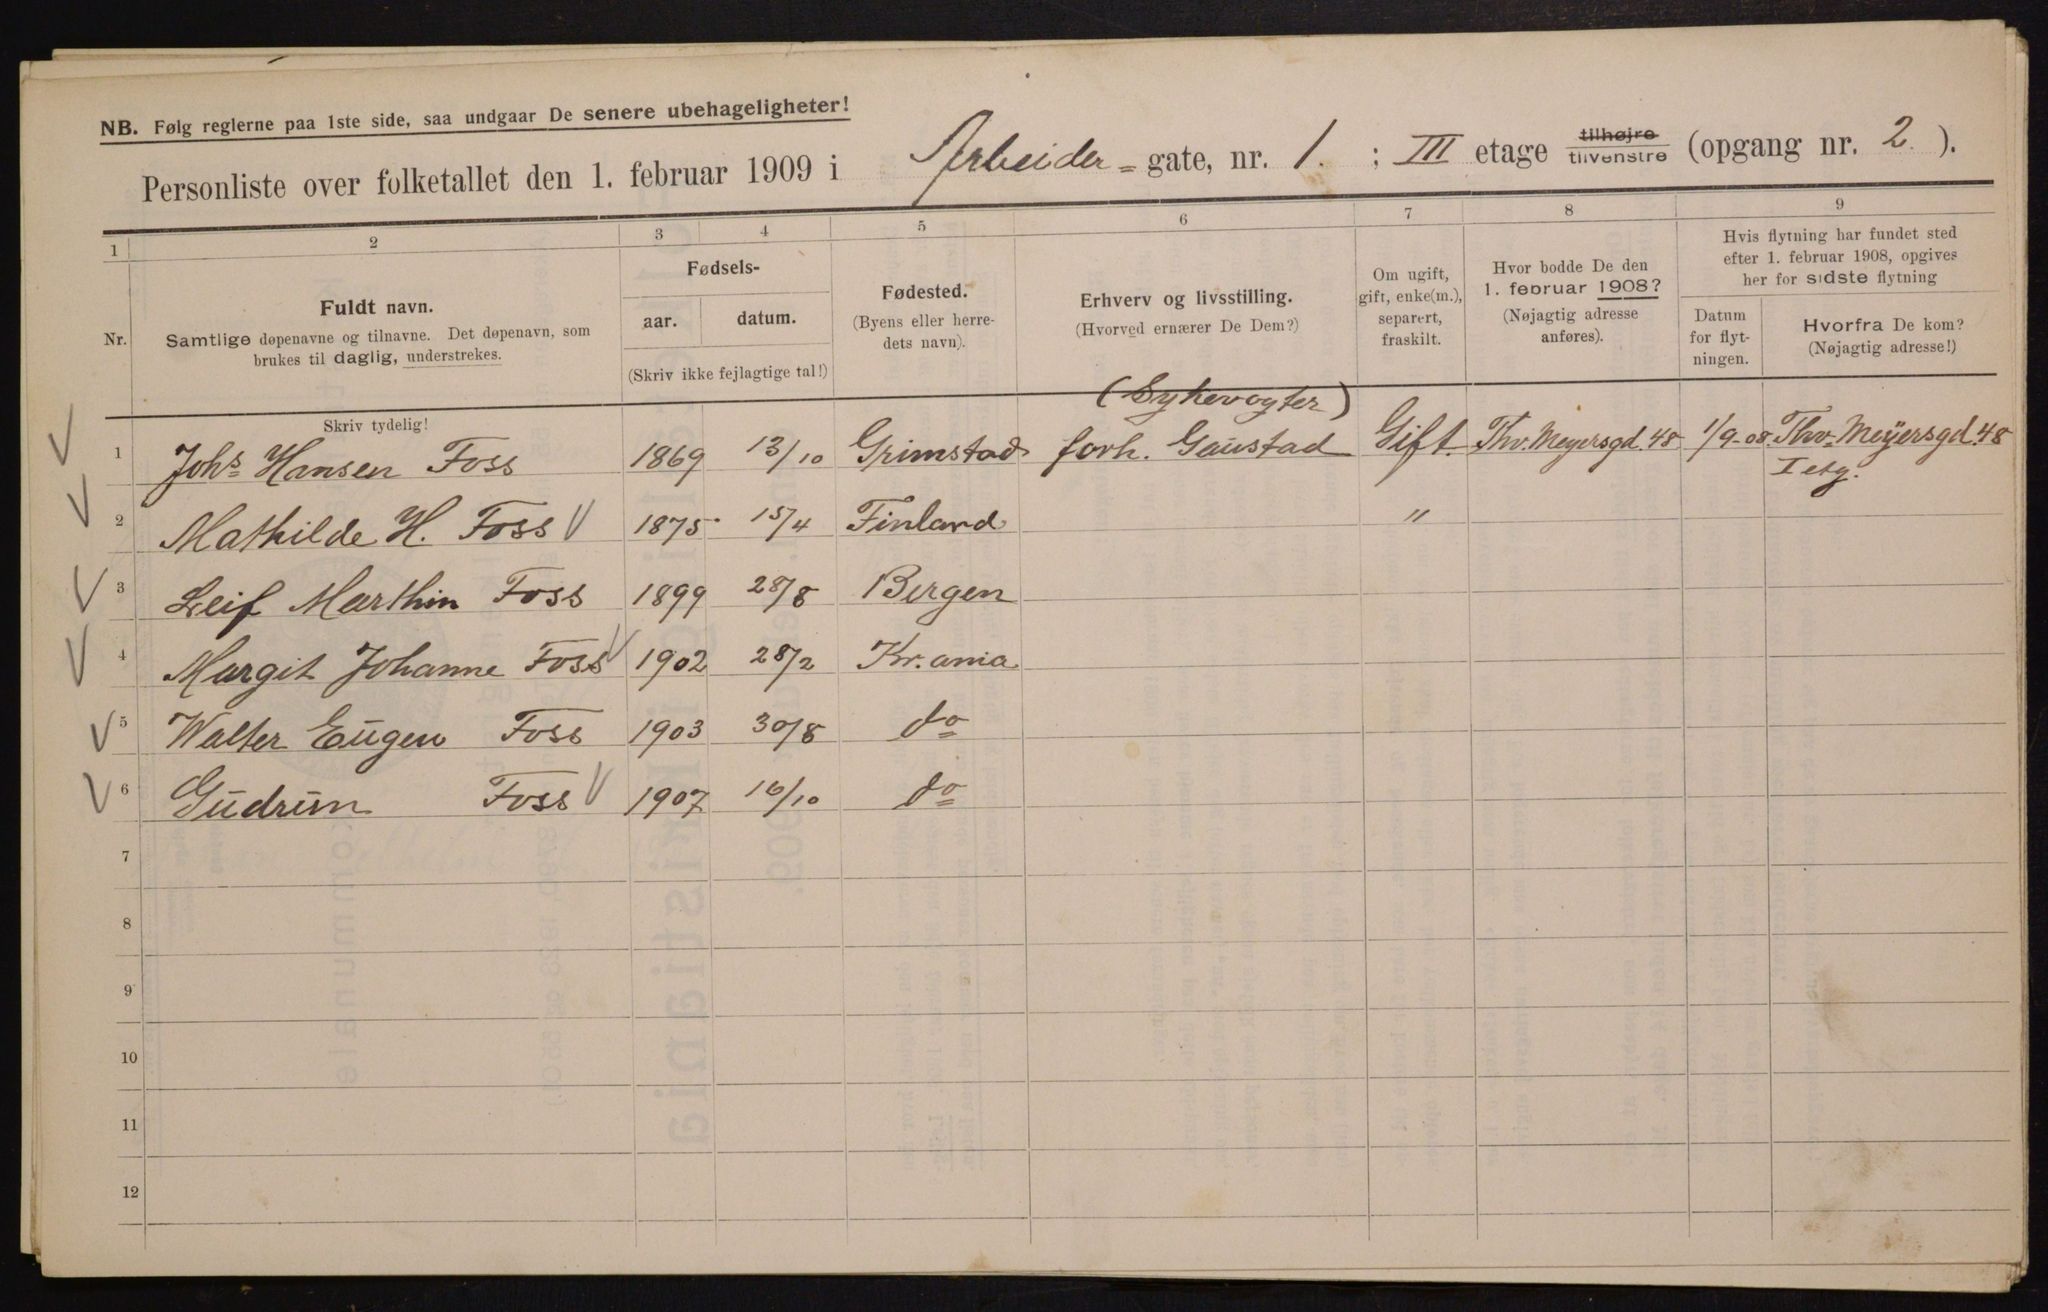 NB. Følg reglerne paa 1ste side, saa undgaar De senere ubehageligheter!
Personliste over folketallet den 1. februar 1909 i Arbeider-gate, nr. 1. ; III etage tilhøjre tilvenstre (opgang nr. 2.).
1 2 3 4 5 6 7 8 9
Nr.
Fuldt navn.
Samtlige døpenavne og tilnavne. Det døpenavn, som
brukes til daglig, understrekes.
Skriv tydelig!
Fødsels-
aar. datum.
(Skriv ikke fejlagtige tal!)
Fødested.
(Byens eller herre-
dets navn).
Erhverv og livsstilling.
(Hvorved ernærer De Dem?)
Om ugift,
gift, enke(m.),
separert,
fraskilt.
Hvor bodde De den
1. februar 1908?
(Nøjagtig adresse
anføres).
Hvis flytning har fundet sted
efter 1. februar 1908, opgives
her for sidste flytning
Datum
for flyt-
ningen.
Hvorfra De kom?
(Nøjagtig adresse!)
(Sykevogter)
1 Johs Hansen Foss 1869 13/10 Grimstad forh. Gaustad Gift. Thv. Meyersgd. 48 1/9-08 Thv. Meyersgd. 48
I etg.
2 Mathilde H. Foss 1875 15/4 Finland "
3 Leif Marthin Foss 1899 28/8 Bergen
4 Margit Johanne Foss 1902 28/2 Kr.ania
5 Walter Eugen Foss 1903 30/8 do
6 Gudrun Foss 1907 16/10 do
7
8
9
10
11
12